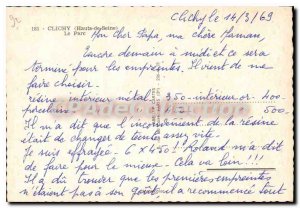 92
185 - CLICHY (Hauts-de-Seine)
Le Parc
Clichy le 14/3/69
Mon cher Papa, ma chère Maman,
Encore demain à midi et ce sera
terminé pour les empreintes. Il vient de me
faire choisir.
résine intérieur métal 350 - intérieur or 400
porcelaine 500
Il m'a dit que l'inconvénient de la résine
était de changer de teinte assez vite.
Je suis effrayée 6 x 450 ! Roland m'a dit
de faire pour le mieux. Cela va loin !!!
Il a dû trouver que les premières empreintes
n'étaient pas à son goût, il a recommencé tout